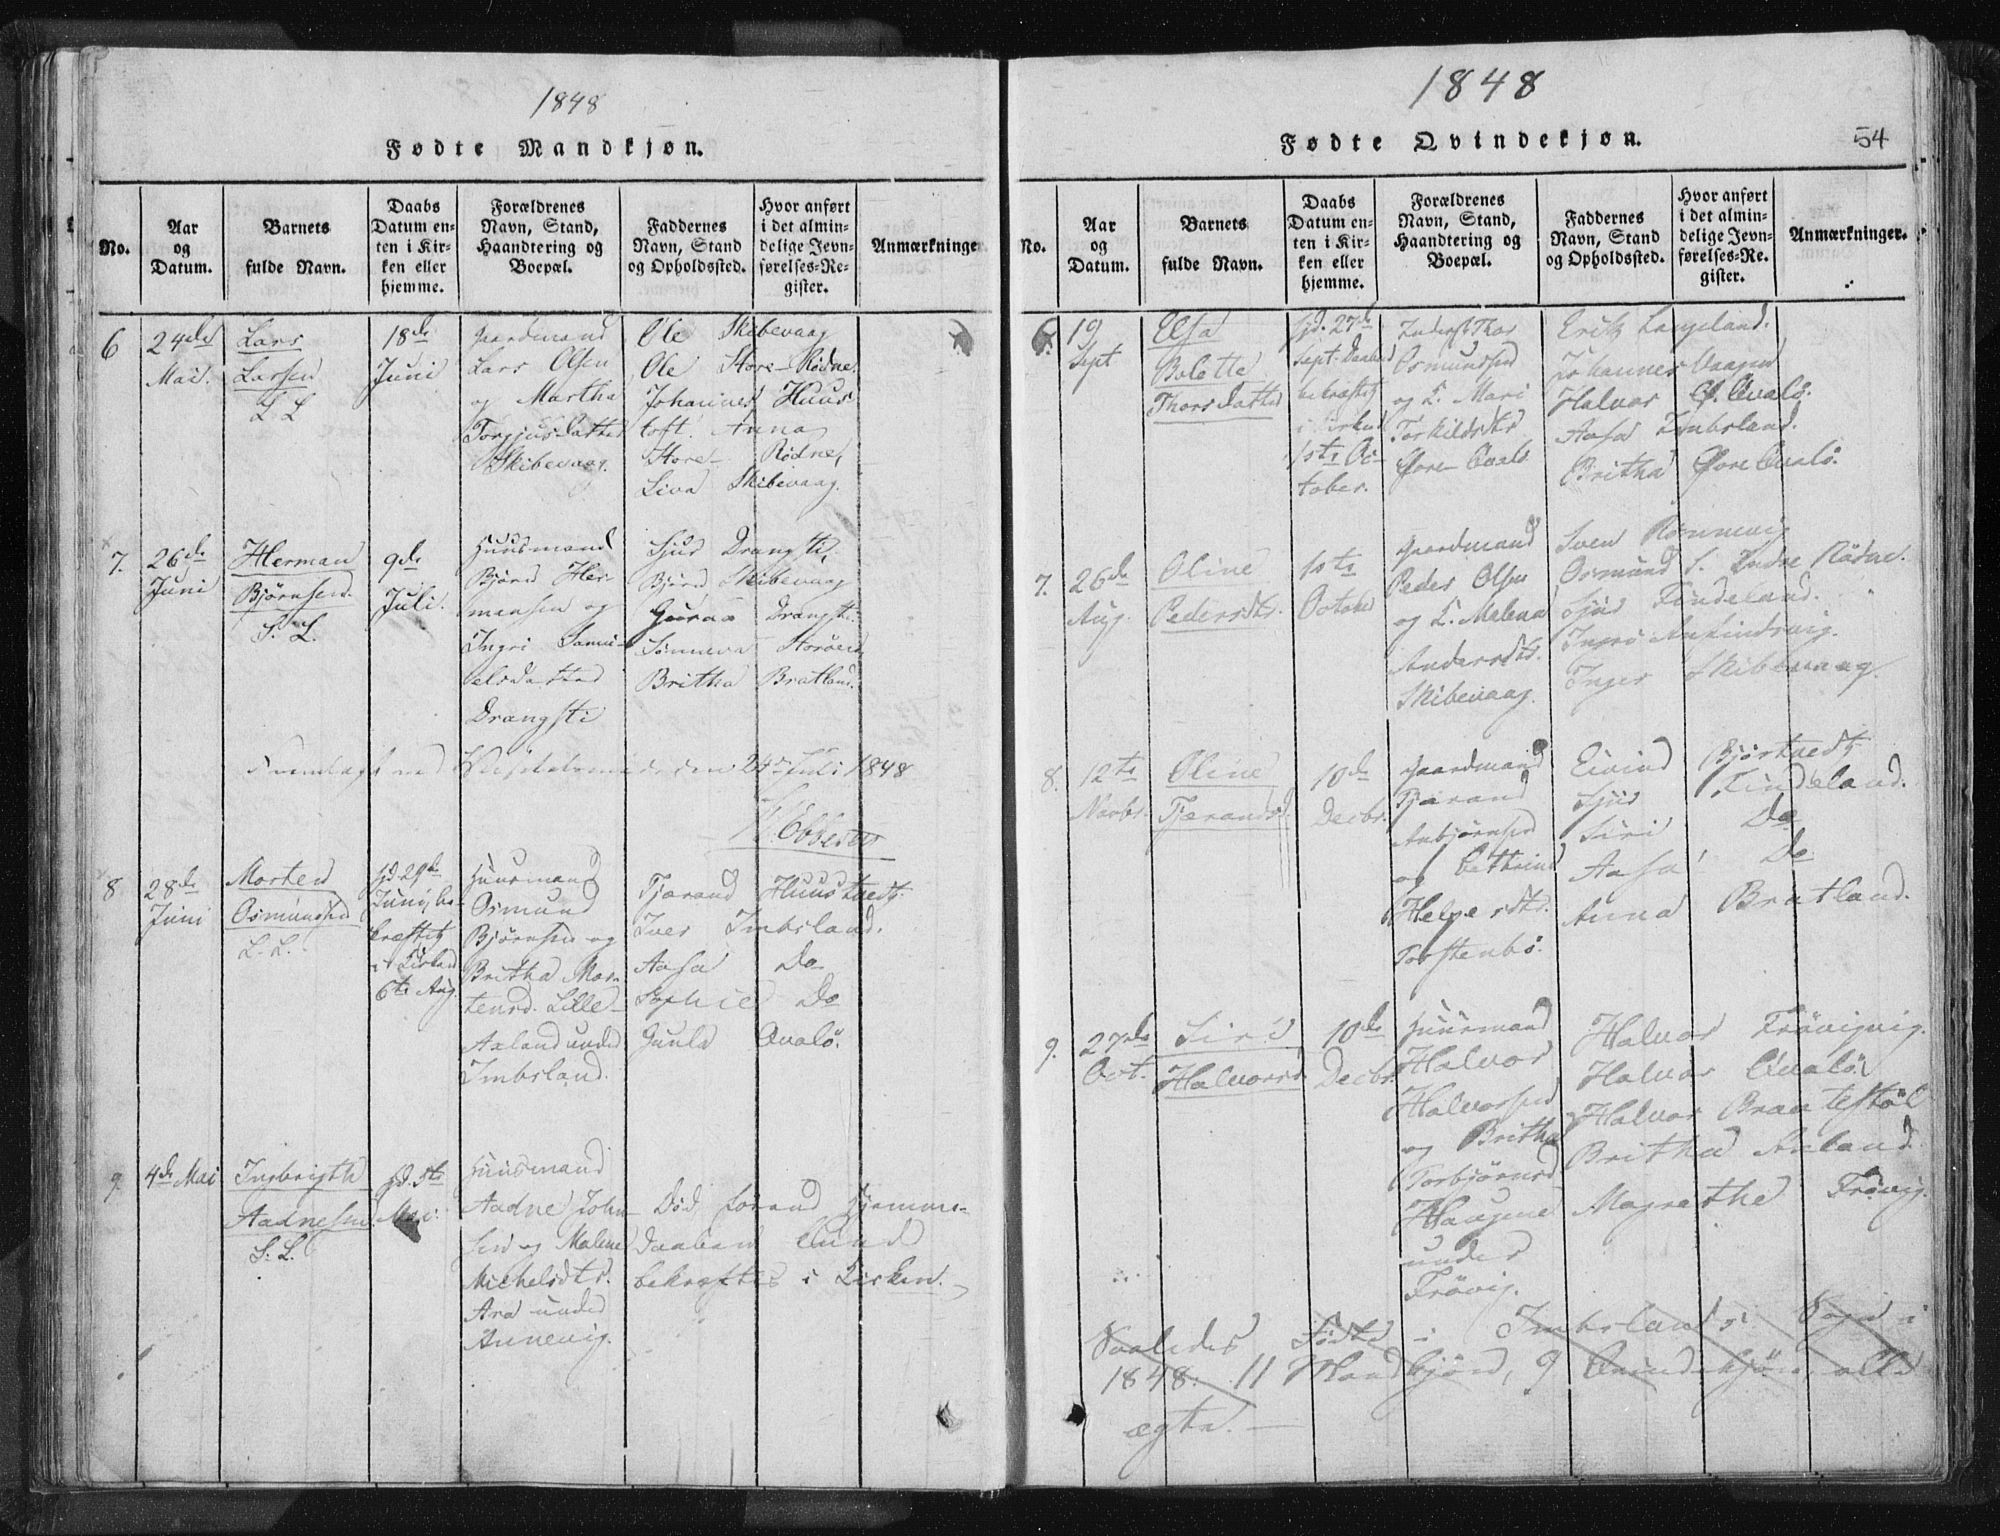 1848
Fødte Mandkjøn.
No.
Aar
og
Datum.
Barnets
fulde Navn.
Daabs
Datum en-
ten i Kir-
ken eller
hjemme.
Forældrenes
Navn, Stand,
Haandtering og
Boepæl.
Faddernes
Navn, Stand
og Opholdssted.
Hvor anført
i det almin-
delige Jevn-
førelses-Re-
gister.
Anmærkninger
6
24de
Mai.
Lars
Larsen
18de
Juni
Gaardmand
Lars Olsen
og Martha
Skibevaag.
Ole Skibevaag
Ole Store-Rødne.
Johannes Huus
toft. Anna
Store-Rødne,
Siva Skibevaag.
7.
26de
Juni
Herman
Bjørnsen.
9de
Juli.
Huusmand
Bjørn Her-
mansen og
Ingri Samu-
elsdatter
Drangsti
Sjur Drangsti,
Bjørn Skibevaag
Guroe Drangsti.
Sønneva Storøen
Britha Bratland.
Juli 1848
8
28de
Juni
Morten
Osmundsen
hd. 29de
Juni, be
kræftet
i Kirken
6te Aug.
Huusmand
Osmund
Bjørnsen og
Britha Mor-
tensd. Lille-
Axland under
Imbsland.
Tjærand Huustvedt.
Iver Imbsland.
Aasa Do
Sophie Do
Gunla Qvalø.
9.
4de Mai
Ingbrigth
Aadnesen
hd. 5te
Mai.
Huusmand
Aadne John-
sen og Malene
Michelsdtr.
Ara under
Annevig.
Død førend Hjemme-
daaben kunde
bekræftes i Kirken.
1848
54
Fødte Qvindekjøn.
No.
Aar
og
Datum.
Barnets
fulde Navn.
Daabs
Datum en-
ten i Kir-
ken eller
hjemme.
Forældrenes
Navn, Stand,
Haandtering og
Boepæl.
Faddernes
Navn, Stand
og Opholdssted.
Hvor anført
i det almin-
delige Jevn-
førelses-Re-
gister.
Anmærkninger.
6.
19
Sept
Elsa
Bolette
Thorsdatter
hd. 27de
Sept. Daaben
bekræftet
i Kirken
1ste Oc-
tober.
Thor
Osmundsen
og K. Mari
Torkildsdtr
Øvre-Qvalø
Erik Langeland.
Johannes Vaagen
Halvor Ø. Qvalø.
Aasa Imbsland.
Britha Øvre Qvalø.
7.
26de
Aug.
Oline
Pedersdtr.
1ste
October
Gaardmand
Peder Olsen
og K. Malena
Andersdtr.
Skibevaag.
Sven Rømnevig
Osmund S. Indre Rødne.
Sjur Tindeland.
Inger Skibevaag.
8.
12te
Novbr.
Oline
Tjerandsd.
10de
Decbr.
Gaardmand
Tjærand
Anbjørnsen
og Cathrine
Helgesdtr.
Torstenbø.
Eivind Bjørtvedt
Sjur Tindeland.
Siri Do
Aasa Do
Anna Bratland.
9.
27de
Oct.
Siri
Halvorsd.
10de
Decbr.
Huusmand
Halvor
Halvorsen
og Britha
Torbjørnsd
Haugene
under
Frövig.
Halvor Frövigvig.
Halvor Qvalø.
Halvor Braatestøl
Britha Axland.
Magrethe Frövig.
Saaledes Födte i Imbslands Sogn i
1848. 11 Mandkjøn, 9 Qvindekjøn, alle
ægte.